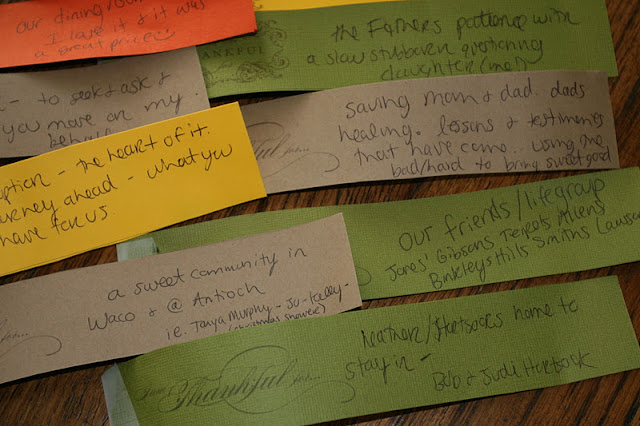 our dining room
I love it & it was
a great price
the Father's patience with
a slow stubborn questioning
daughter (me)
THANKFUL
- to seek & ask &
you move on my
behalf
saving mom & dad. dads
healing. lessons & testimonies
that have come.. using the
bad/hard to bring sweet good
for...
option - the heart of it.
journey ahead - what you
have for us.
our friends/lifegroup
Jones' Gibsons Terpets Aliens
Binkleys Hills Smiths
a sweet community in
Waco & @ Antioch
i.e. Tanya Murphy - Jo - Kelly -
(christmas shower)
for...
Heather/Hartsocks home to
stay in -
Bob & Judi Hartsock
I am Thankful for...